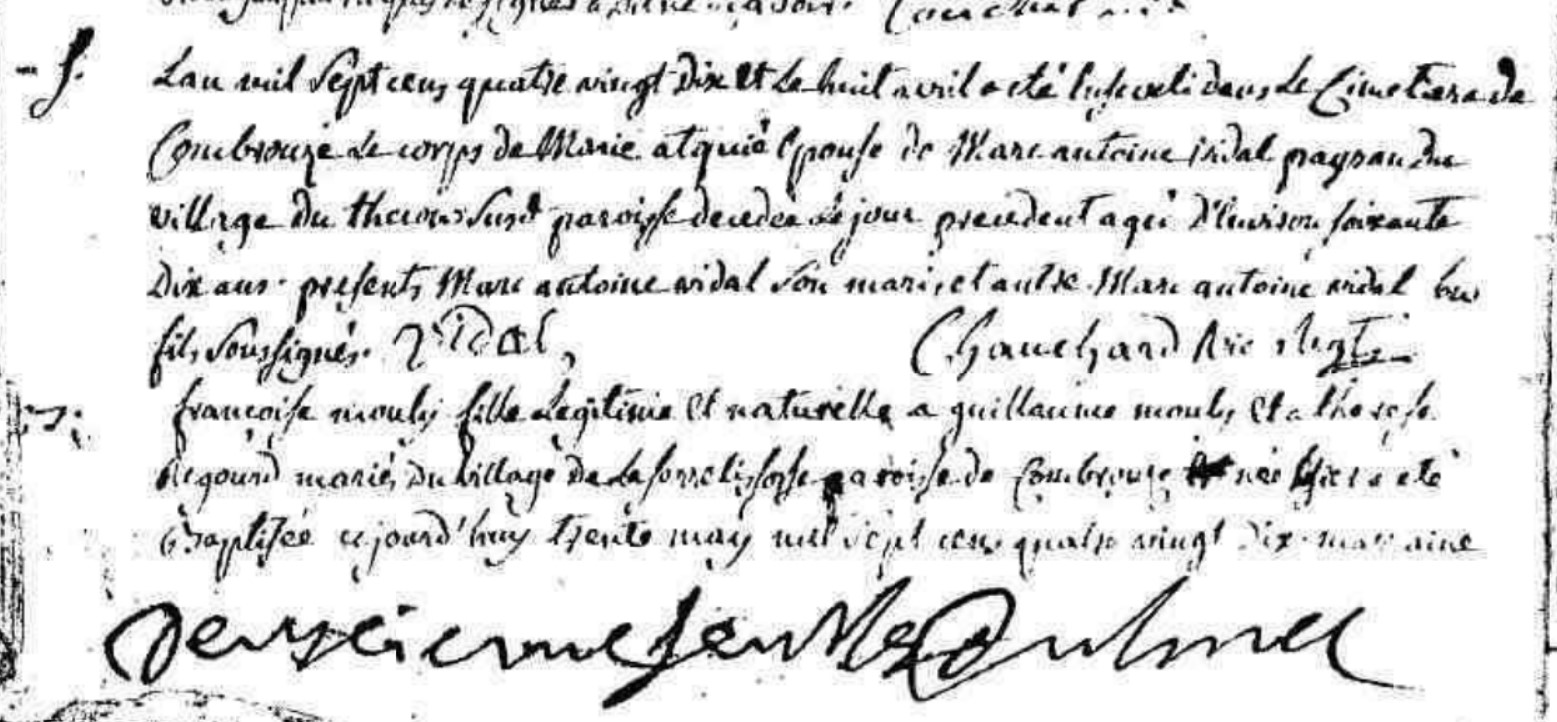 S.
L'an mil Sept cens quatre vingt Dix et Le huit avril a eté Enseveli dans Le Cimetiere de
Combrouze Le corps de Marie alquié Epouse de Marc antoine vidal paysan du
village du therou Susd paroisse decedée Le jour precedent agée D'environ soixante
Dix ans. presents Marc antoine vidal Son mari, et autre Marc antoine vidal Leur
fils Soussignés. Vidal, Chauchard
françoise mouly fille Legitime Et naturelle a guillaume mouly Et a therese
Regourd mariés du village de paroisse de Combrouze née hier a eté
Baptisée aujourd'huy trente may mil Sept cens quatre vingt Dix. marraine
Deuxieme feuille Dulmet